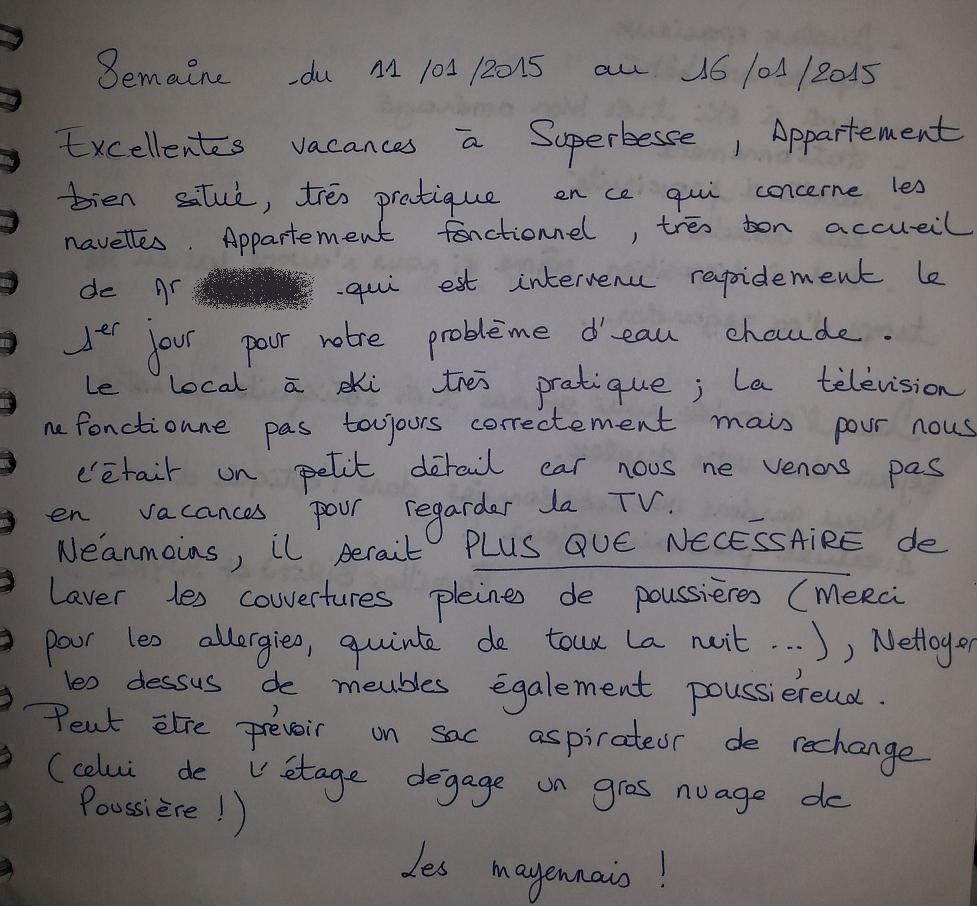 Semaine du 11/01/2015 au 16/01/2015
Excellentes vacances à Superbesse, Appartement
bien situé, très pratique en ce qui concerne les
navettes. Appartement fonctionnel, très bon accueil
de Mr qui est intervenu rapidement le
1er jour pour notre problème d'eau chaude.
Le local à ski très pratique ; La télévision
ne fonctionne pas toujours correctement mais pour nous
c'était un petit détail car nous ne venons pas
en vacances pour regarder la TV.
Néanmoins, il serait PLUS QUE NECESSAIRE de
Laver les couvertures pleines de poussières (Merci
pour les allergies, quinte de toux la nuit ...), Nettoyer
les dessus de meubles également poussiéreux.
Peut être prévoir un sac aspirateur de rechange
(celui de l'étage dégage un gros nuage de
Poussière !)
Les mayennais !